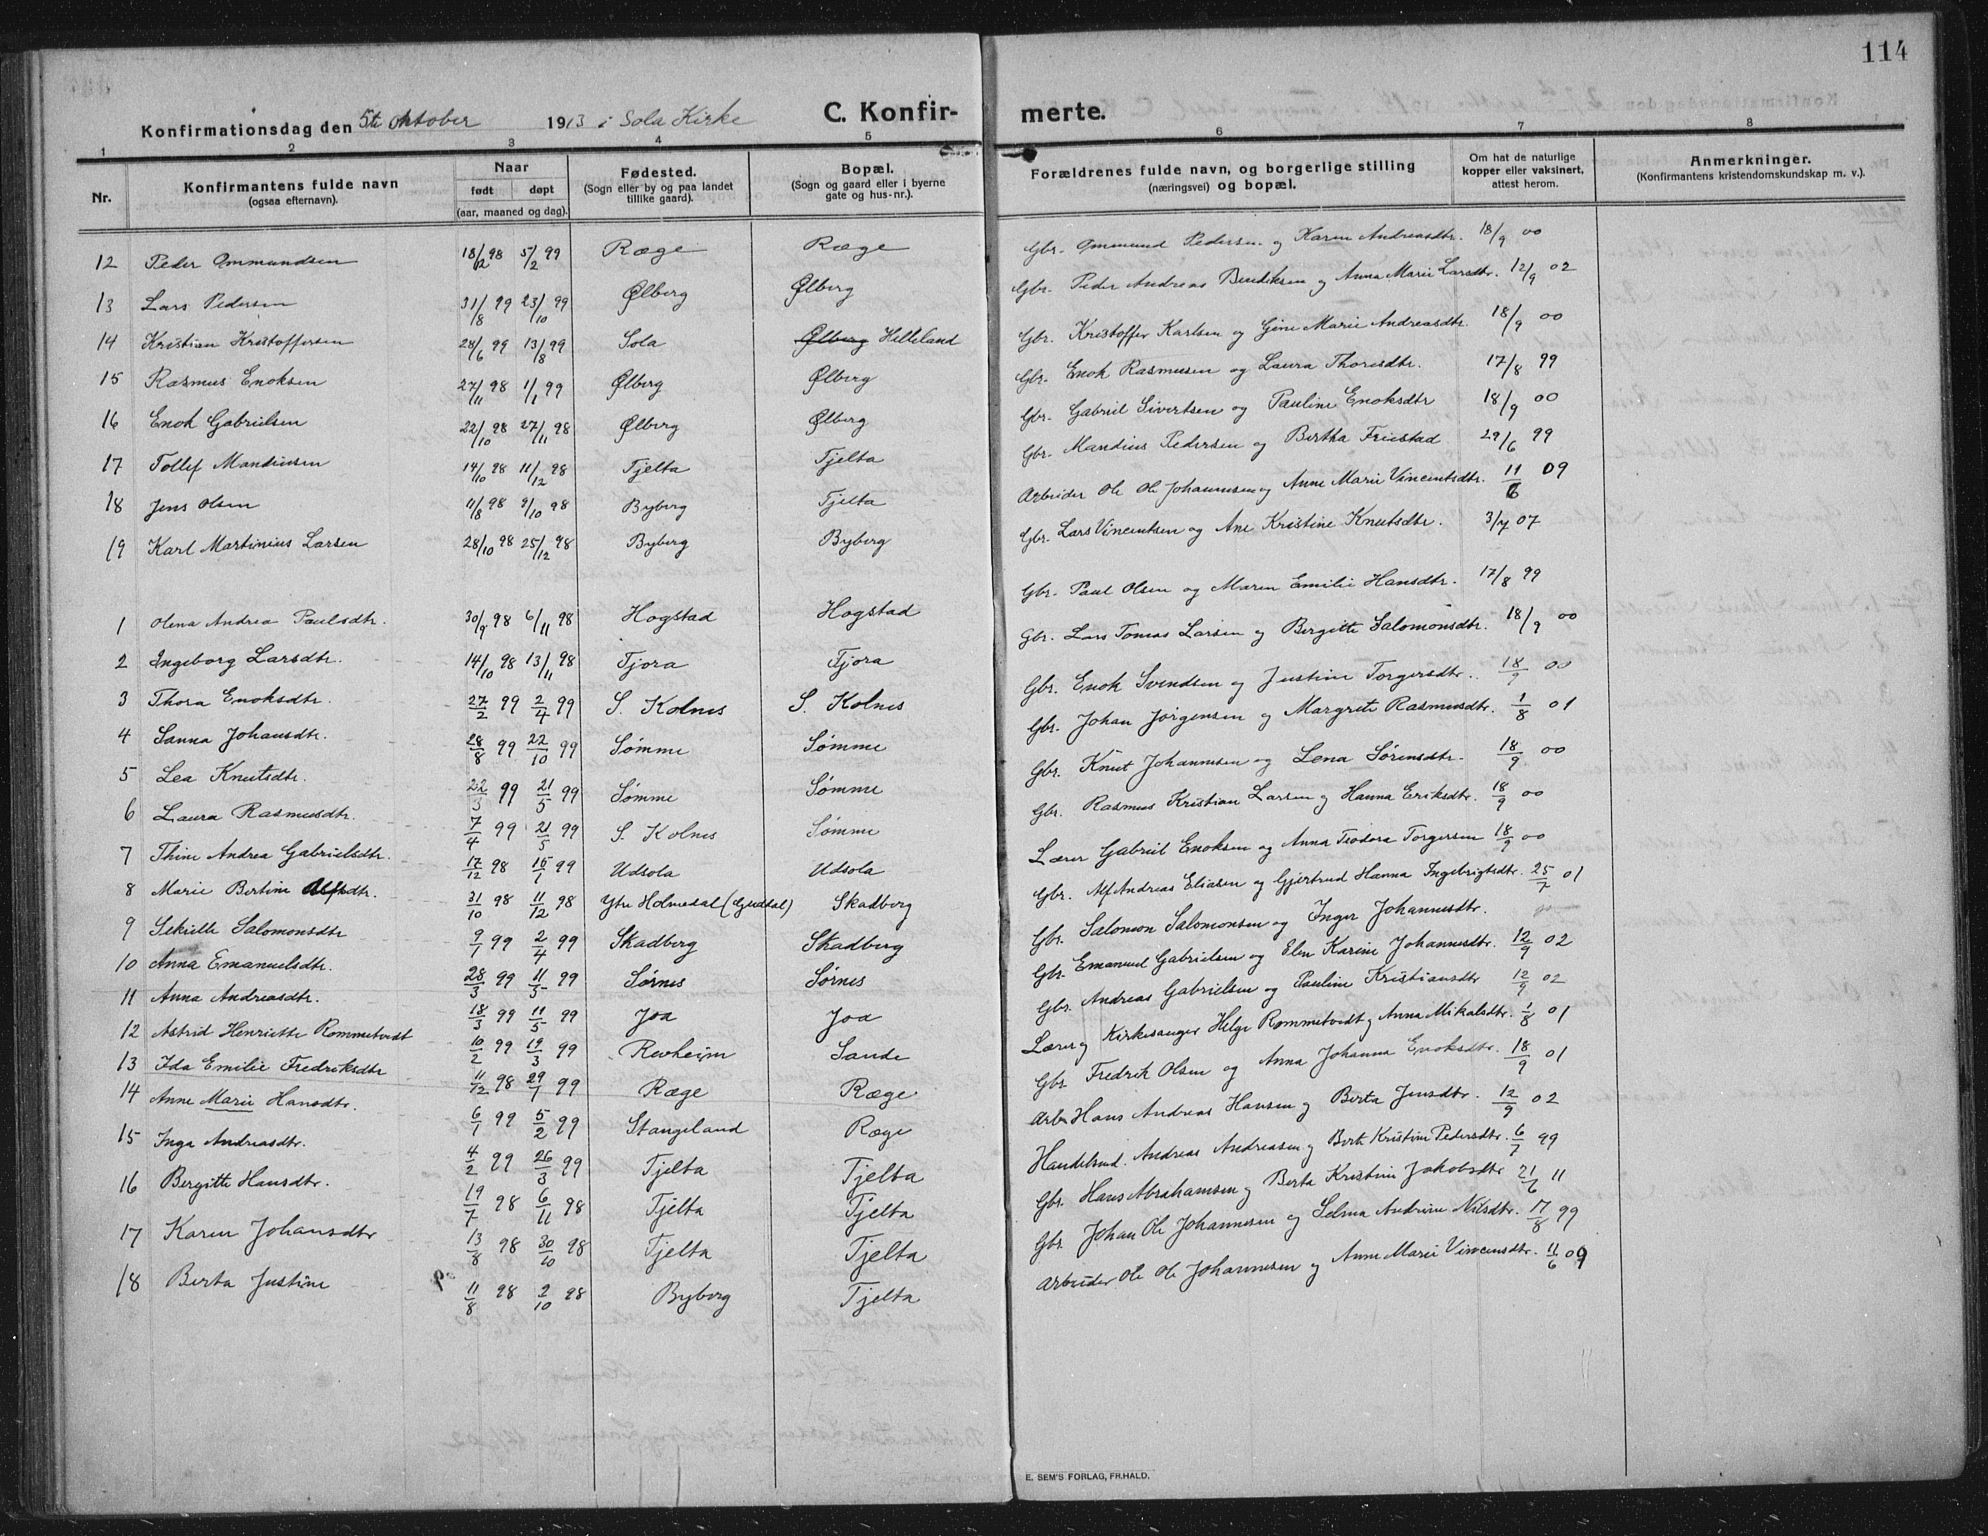 114
Konfirmationsdag den 5te oktober 1913 i Sola Kirke C. Konfir- merte.
1 2 3 4 5 6 7 8
Nr. Konfirmantens fulde navn (ogsaa efternavn). Naar født døpt (aar, maaned og dag). Fødested. (Sogn eller by og paa landet tillike gaard). Bopæl. (Sogn og gaard eller i byerne gate og hus-nr.). Forældrenes fulde navn, og borgerlige stilling (næringsvei) og bopæl. Om hat de naturlige kopper eller vaksinert, attest herom. Anmerkninger. (Konfirmantens kristendomskundskap m. v.).
12 Peder Ommundsen 18/12 98 5/2 99 Ræge Ræge Gbr. Ommund Pedersen og Karen Andreasdtr. 18/9 00
13 Lars Pedersen 31/8 99 23/10 99 Ølberg Ølberg Gbr. Peder Andreas Bendiksen og Anna Marie Larsdtr. 12/9 02
14 Kristian Kristoffersen 28/6 99 13/8 99 Sola Ølberg Helleland Gbr. Kristoffer Karlsen og Gine Marie Andreasdtr. 18/9 00
15 Rasmus Enoksen 27/11 98 1/1 99 Ølberg Ølberg Gbr. Enok Rasmusen og Laura Thoresdtr. 17/8 99
16 Enok Gabrielsen 22/10 98 27/11 98 Ølberg Ølberg Gbr. Gabriel Sivertsen og Pauline Enoksdtr 18/9 00
17 Tollef Mandiusen 14/10 98 11/12 98 Tjelta Tjelta Gbr. Mandius Pedersen og Bertha Friestad 29/6 99
18 Jens Olsen 11/8 98 2/10 98 Byberg Tjelta Arbeider Ole Ole Johannesen og Anne Marie Vincentsdtr. 11/6 09
19 Karl Martinius Larsen 28/10 98 25/12 98 Byberg Byberg Gbr. Lars Vincentsen og Ane Kristine Knutsdtr. 3/7 07
1 Olena Andrea Paulsdtr. 30/9 98 6/11 98 Hogstad Hogstad Gbr. Paul Olsen og Maren Emilie Hansdtr. 17/8 99
2 Ingeborg Larsdtr. 14/10 98 13/11 98 Tjora Tjora Gbr. Lars Tomas Larsen og Bergitte Salomonsdtr. 18/9 00
3 Thora Enoksdtr. 27/2 99 2/4 99 S. Kolnes S. Kolnes Gbr. Enok Svendsen og Justine Torgersdtr. 18/9 00
4 Sanna Johansdtr. 28/8 99 22/10 99 Sømme Sømme Gbr. Johan Jørgensen og Margrete Rasmusdtr. 1/8 01
5 Lea Knutsdtr. 22/3 99 21/5 99 Sømme Sømme Gbr. Knut Johannesen og Lena Sørensdtr. 18/9 00
6 Laura Rasmusdtr. 7/4 99 21/5 99 S. Kolnes Sømme Gbr. Rasmus Kristian Larsen og Hanna Eriksdtr. 18/9 00
7 Thine Andrea Gabrielsdtr. 17/12 98 15/1 99 Udsola Udsola Lærer Gabriel Enoksen og Anna Teodora Torgersen 18/9 00
8 Marie Bertine Alfsdtr. 31/10 98 11/12 98 Ytre Holmedal (Guddal) Skadberg Gbr. Alf Andreas Eliasen og Gjertrud Hanna Ingebrigtsdtr. 25/7 01
9 Sekielle Salomonsdtr 9/1 99 2/4 99 Skadberg Skadberg Gbr. Salomon Salomonsen og Inger Johannesdtr.
10 Anna Emanuelsdtr. 28/3 99 11/5 99 Sørnes Sørnes Gbr. Emanuel Gabrielsen og Elen Karine Johannesdtr. 12/9 02
11 Anna Andreasdtr. 18/3 99 11/5 99 Joa Joa Gbr. Andreas Gabrielsen og Pauline Kristiansdtr 12/9 02
12 Astrid Henriette Rommetvedt 10/2 99 19/3 99 Revheim Sande Lærer og Kirkesanger Helge Rommetvedt og Anna Mikalsdtr. 1/8 01
13 Ida Emilie Fredriksdtr 11/12 98 29/1 99 Ræge Ræge Gbr. Fredrik Olsen og Anna Johanna Enoksdtr. 18/9 01
14 Anne Marie Hansdtr. 6/1 99 5/2 99 Stangeland Ræge Arbr Hans Andreas Hansen og Berta Jensdtr. 12/9 02
15 Inga Andreasdtr. 4/2 99 26/3 99 Tjelta Tjelta Handelsmd. Andreas Andreasen og Berte Kristine Pedersdtr. 6/7 99
16 Bergitte Hansdtr. 19/7 98 6/11 98 Tjelta Tjelta Gbr. Hans Abrahamsen og Berta Kristine Jakobsdtr 21/6 11
17 Karen Johansdtr 13/8 98 30/10 98 Tjelta Tjelta Gbr. Johan Ole Johannesen og Selma Andrine Nilsdtr. 17/8 99
18 Berta Justine 11/8 98 2/10 98 Byberg Tjelta Arbeider Ole Ole Johannesen og Anne Marie Vincensdtr. 11/6 09
E. SEM'S FORLAG, FR.HALD.